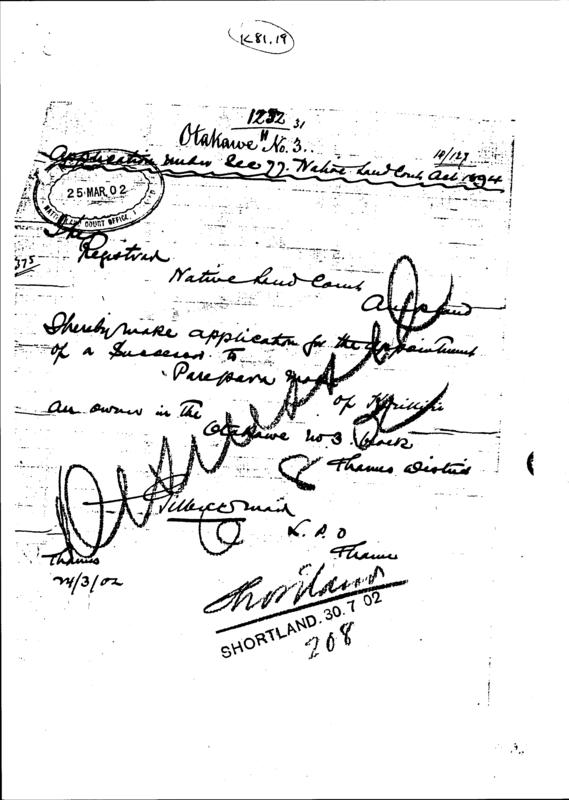 K81.19
1232 31
Otakawe No. 3.
10/127
Application under Sec 77. Native Land Court Act 1894
25 MAR. 02
NATIVE LAND COURT OFFICE,
The
Registrar
375
Native Land Court
Auckland
I hereby make application for the appointment
of a Successor to
of
an owner in the
Otakawe No 3. Block
Thames District
L. P. O
Thames
Thames
24/3/02
Dismissed
Shortland
SHORTLAND. 30. 7 02
208